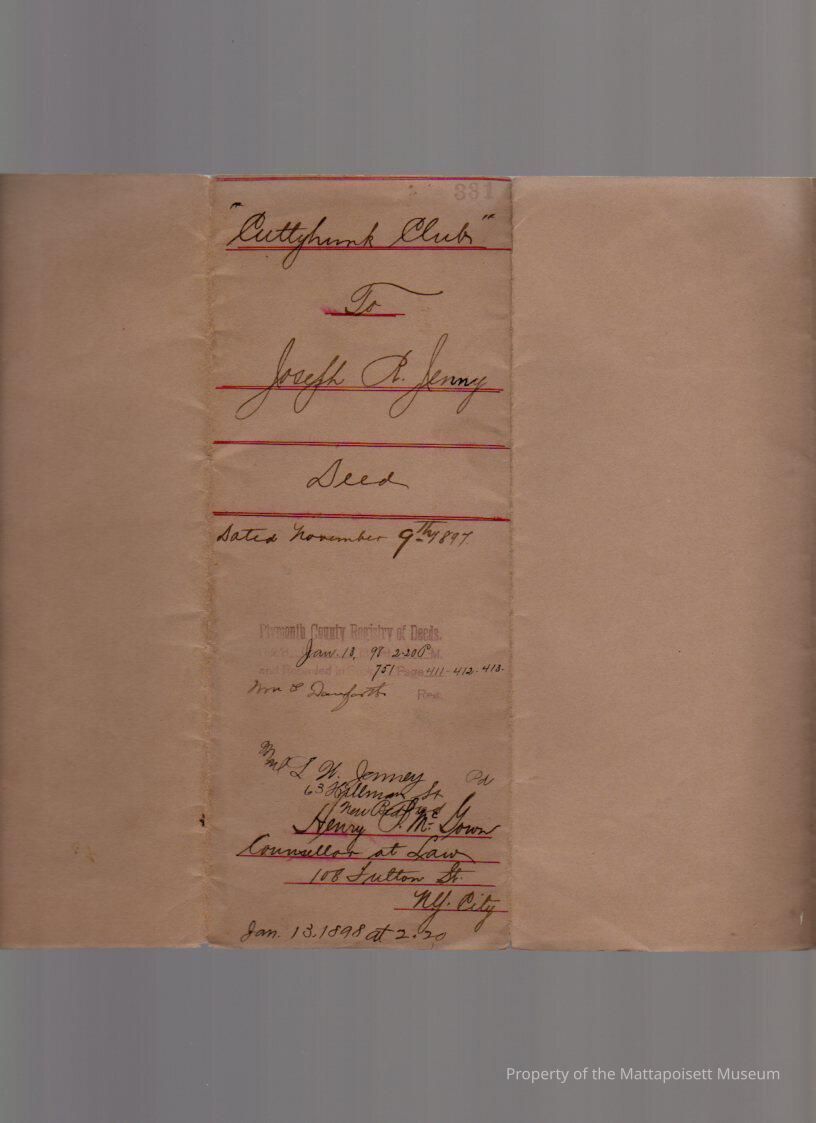 331
"Cuttyhunk Club"
To
Joseph R. Jenny
Deed
Dated November 9th 1897
Plymouth County Registry of Deeds.
Jan. 13, 98 2-20 P M.
and Recorded in 751 Page 411-412-413-
Wm S Danforth Reg.
L. W. Jenney Pd
63 Hillman St
New Bedford
Henry P. McGown
Counsellor at Law
108 Fulton St.
N.Y. City
Jan. 13. 1898 at 2.20
Property of the Mattapoisett Museum